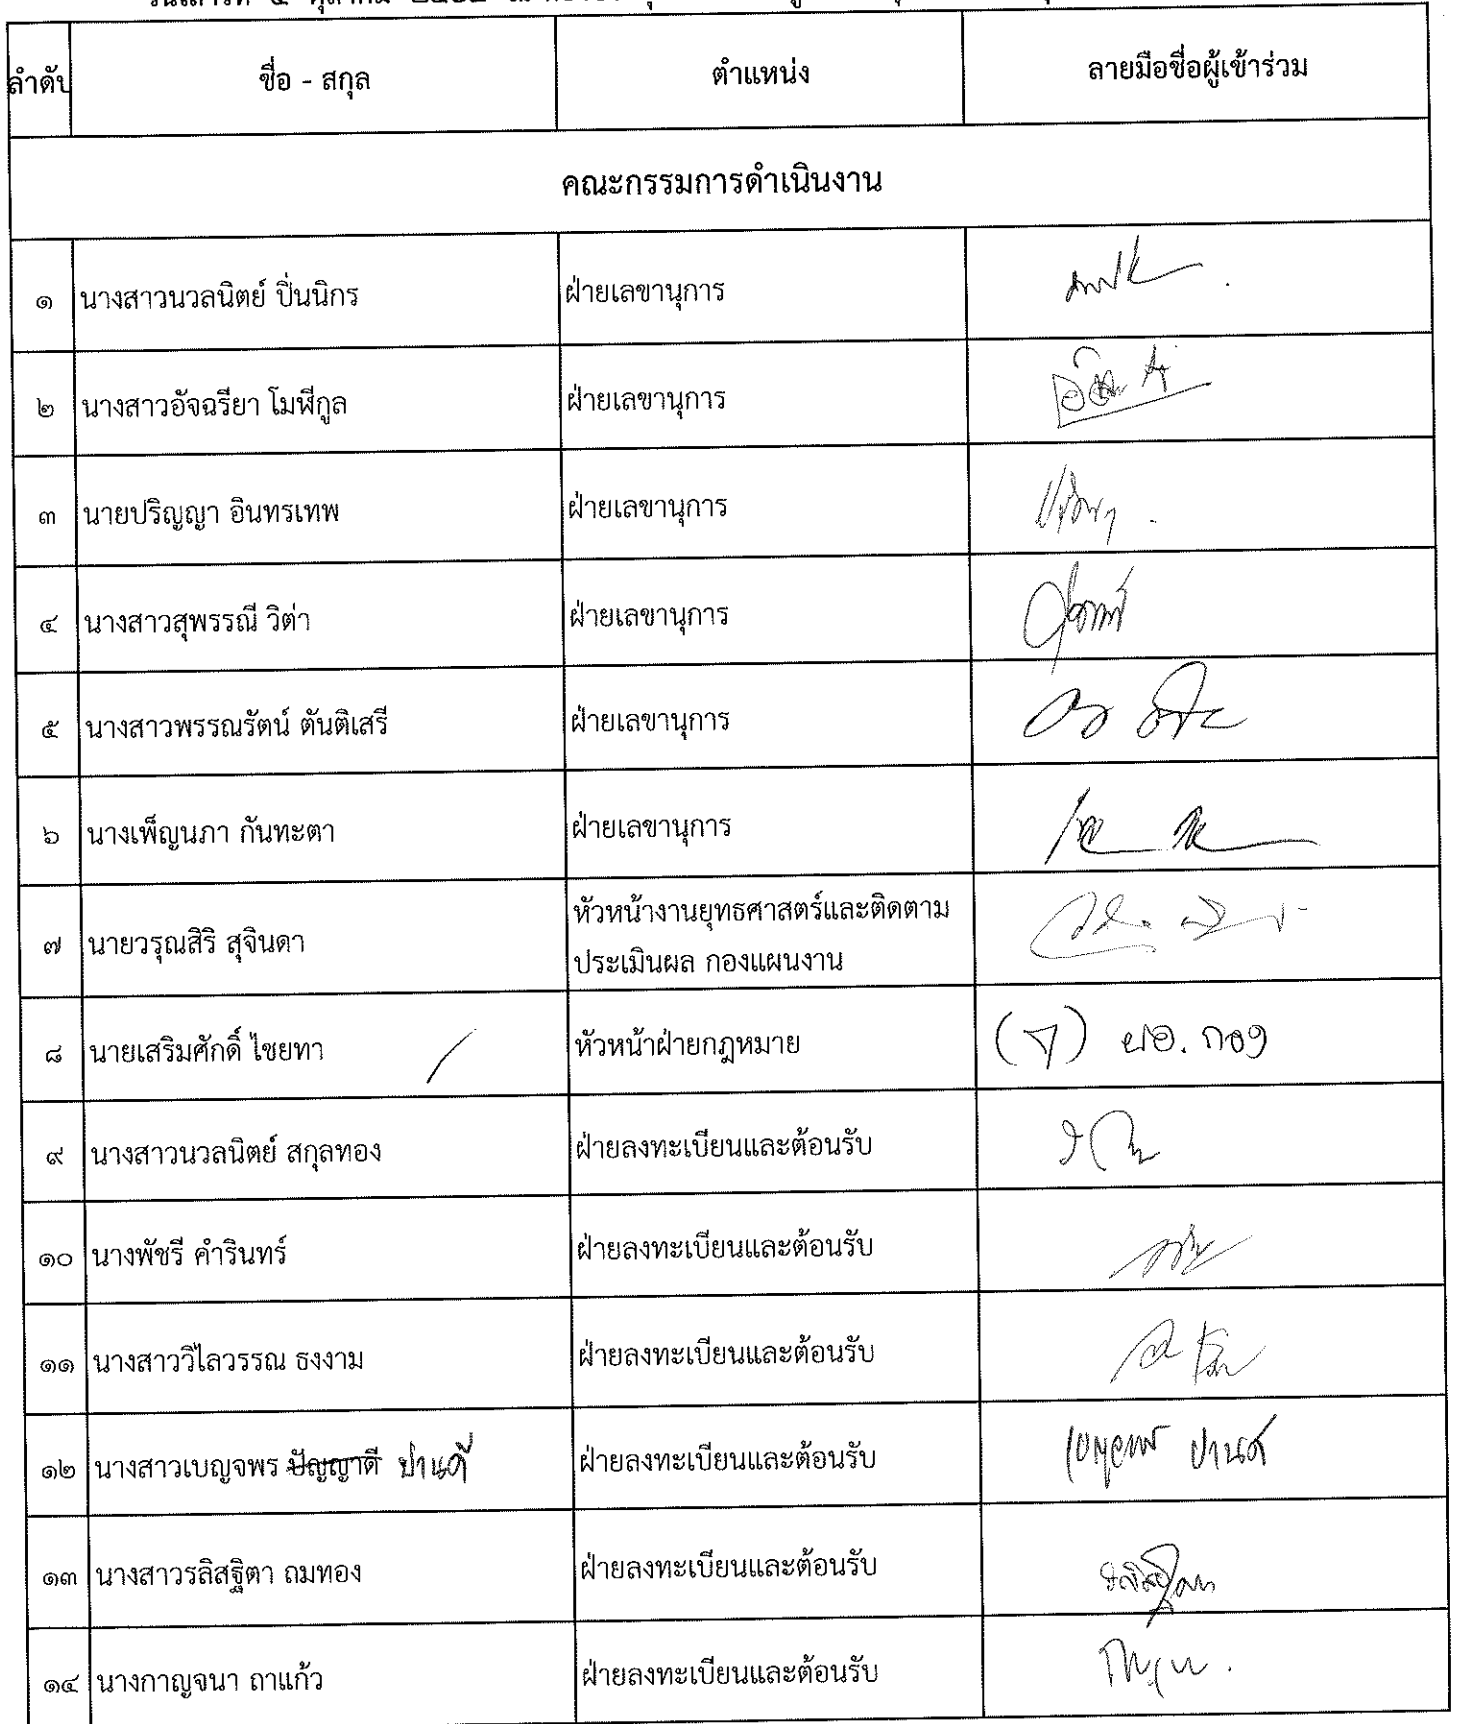 ลำดับ ชื่อ - สกุล ตำแหน่ง ลายมือชื่อผู้เข้าร่วม
คณะกรรมการดำเนินงาน
๑ นางสาวนวลนิตย์ ปิ่นนิกร ฝ่ายเลขานุการ
๒ นางสาวอัจฉรียา โมฬีกูล ฝ่ายเลขานุการ
๓ นายปริญญา อินทรเทพ ฝ่ายเลขานุการ
๔ นางสาวสุพรรณี วิต่า ฝ่ายเลขานุการ
๕ นางสาวพรรณรัตน์ ตันติเสรี ฝ่ายเลขานุการ
๖ นางเพ็ญนภา กันทะตา ฝ่ายเลขานุการ
๗ นายวรุณสิริ สุจินดา หัวหน้างานยุทธศาสตร์และติดตาม
ประเมินผล กองแผนงาน
๘ นายเสริมศักดิ์ ไชยทา หัวหน้าฝ่ายกฎหมาย ผอ. กอง
๙ นางสาวนวลนิตย์ สกุลทอง ฝ่ายลงทะเบียนและต้อนรับ
๑๐ นางพัชรี คำรินทร์ ฝ่ายลงทะเบียนและต้อนรับ
๑๑ นางสาววิไลวรรณ ธงงาม ฝ่ายลงทะเบียนและต้อนรับ
๑๒ นางสาวเบญจพร ปัญญาดี ปานดี ฝ่ายลงทะเบียนและต้อนรับ เบญจพร ปานดี
๑๓ นางสาวรลิสฐิตา ถมทอง ฝ่ายลงทะเบียนและต้อนรับ
๑๔ นางกาญจนา ถาแก้ว ฝ่ายลงทะเบียนและต้อนรับ